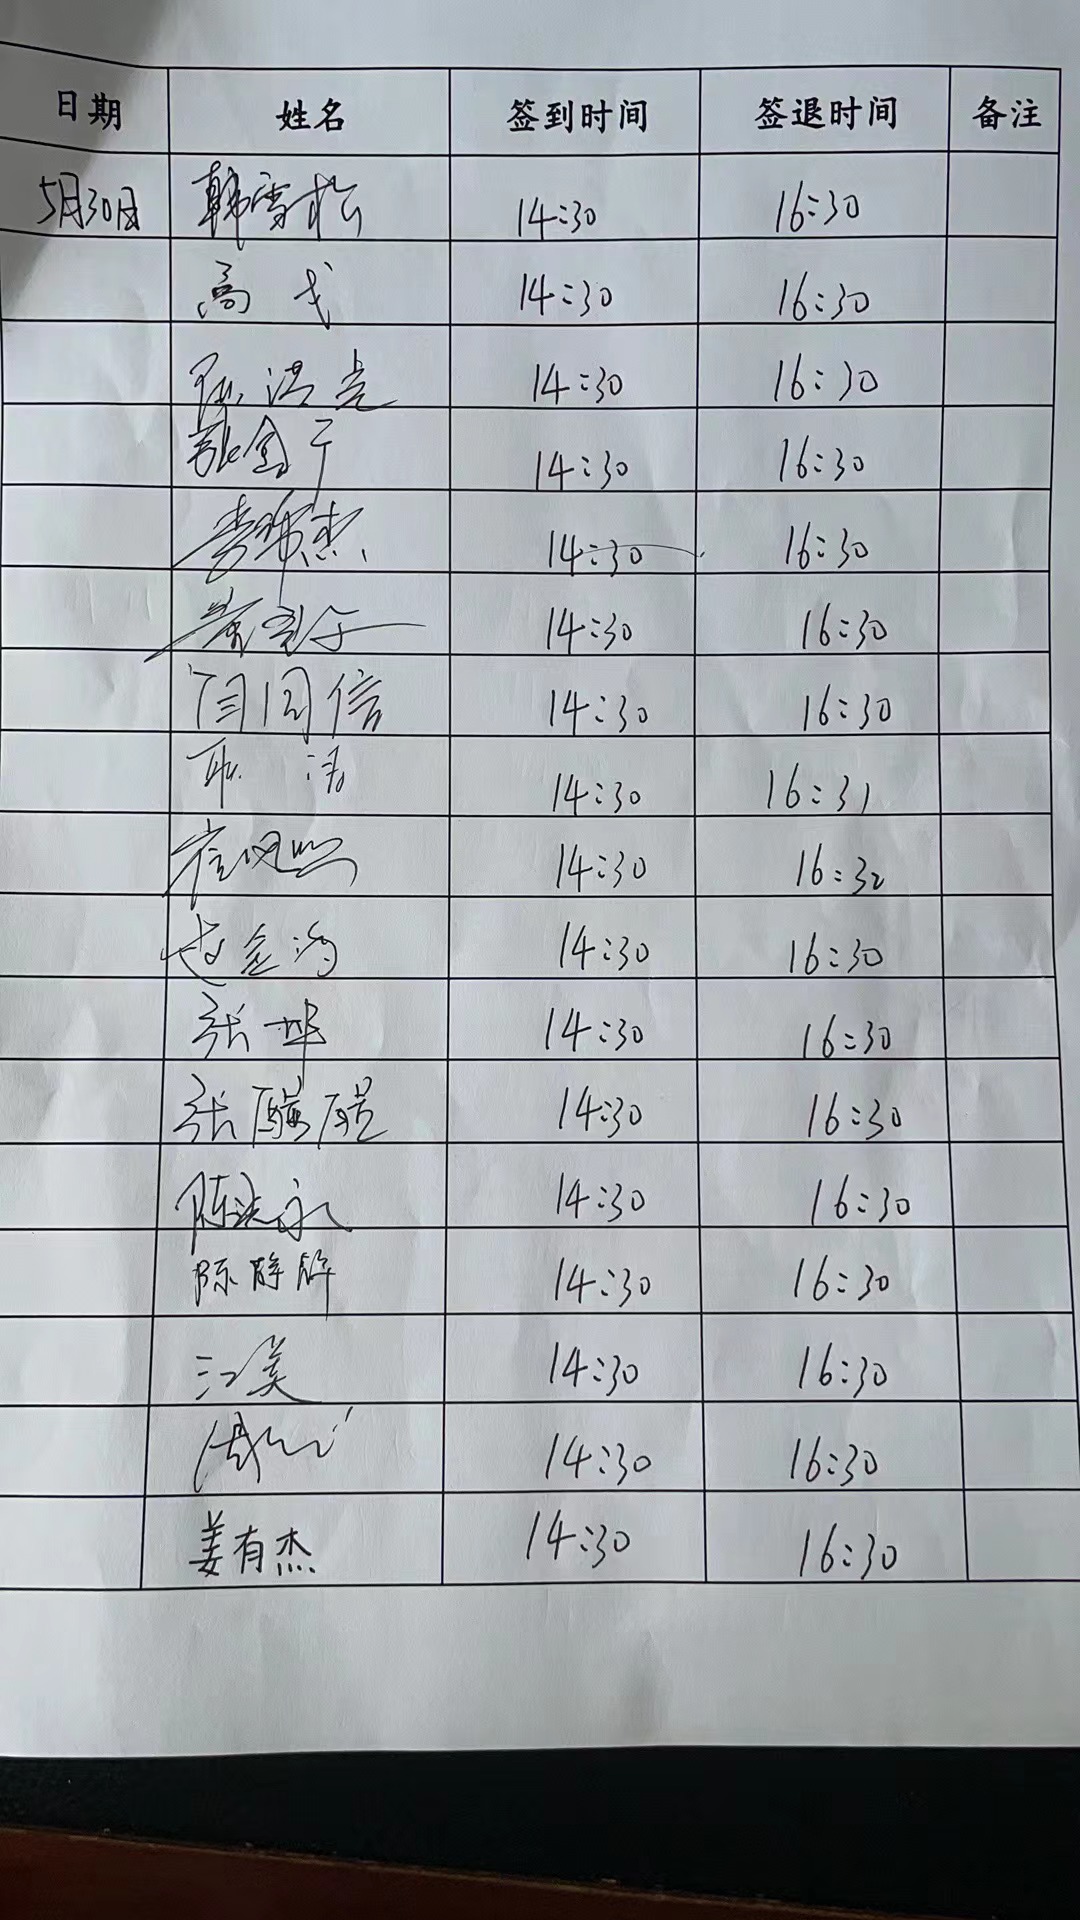 日期 姓名 签到时间 签退时间 备注
5月30日 韩雪松 14:30 16:30
高戈 14:30 16:30
14:30 16:30
张金于 14:30 16:30
14:30 16:30
14:30 16:30
闫同信 14:30 16:30
耿洁 14:30 16:31
14:30 16:32
赵金海 14:30 16:30
张坤 14:30 16:30
张 14:30 16:30
陈 永 14:30 16:30
陈静静 14:30 16:30
江美 14:30 16:30
14:30 16:30
姜有杰 14:30 16:30